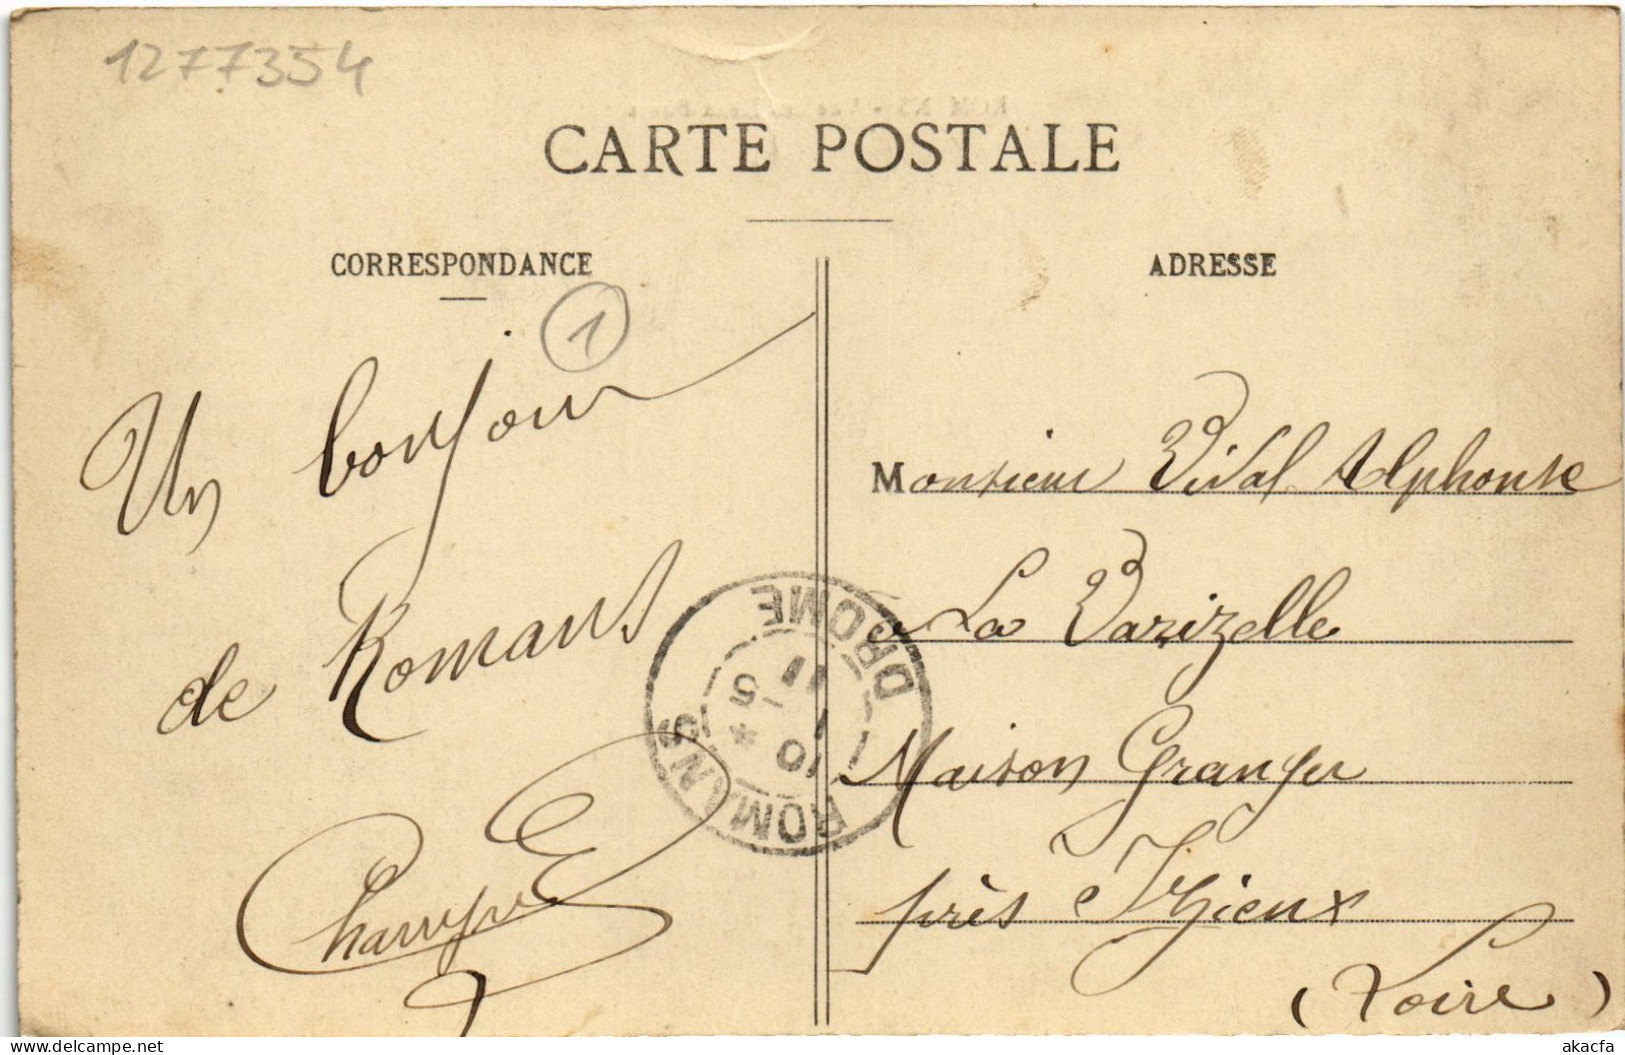 1277354
CARTE POSTALE
CORRESPONDANCE
ADRESSE
1
Un bonjour
de Romans
Monsieur Vidal Alphonse
a La Varizelle
Maison Granger
près Izieux
(Loire)
ROMANS
DRÔME
10 *
1 - 5
11
akacfa